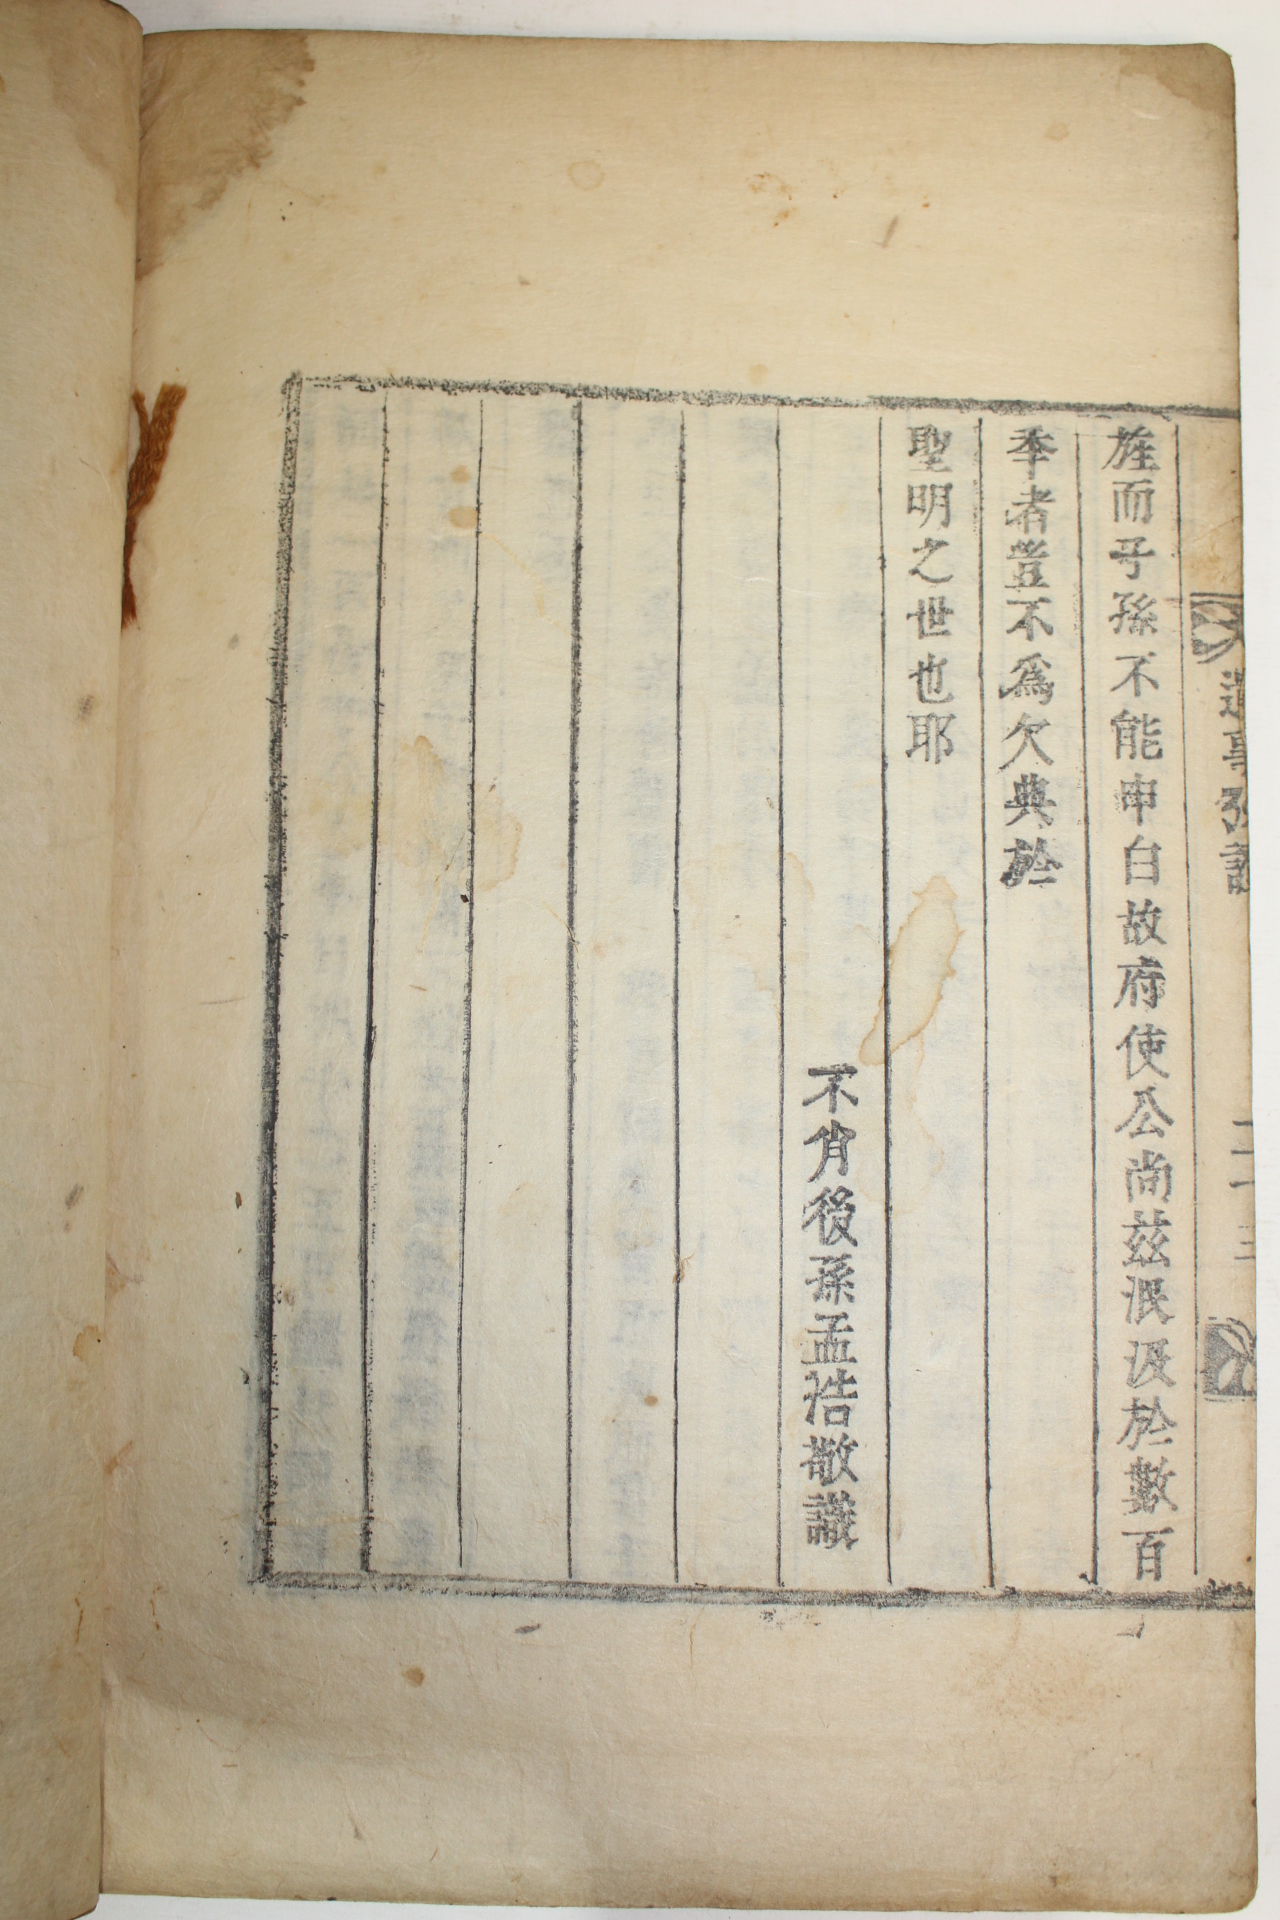 旌而子孫不能申白故府使公尚茲泯沒於數百
季者豈不爲欠典於
聖明之世也耶
不肖後孫孟浩敬識
二十三